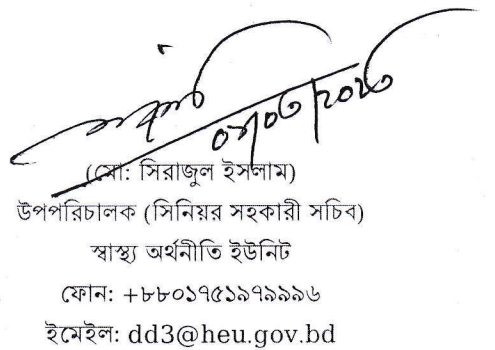 (মো: সিরাজুল ইসলাম)
উপপরিচালক (সিনিয়র সহকারী সচিব)
স্বাস্থ্য অর্থনীতি ইউনিট
ফোন: +৮৮০১৭৫১৯৭৯৯৯৬
ইমেইল: dd3@heu.gov.bd